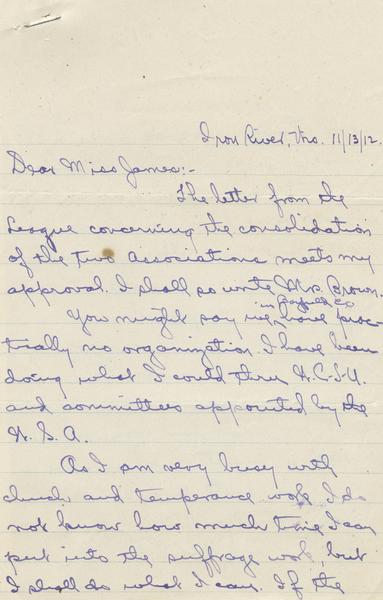 Iron River, Wis. 11/13/12.
Dear Miss James:-
The letter from the
League concerning the consolidation
of the two associations meets my
approval. I shall so write Mrs. Brown.
in Bayfield Co
You might say we have prac-
tically no organization. I have been
doing what I could thru W.C.T.U.
and committees appointed by the
W.S.A.
As I am very busy with
church and temperance work I do
not know how much time I can
put into the suffrage work, but
I shall do what I can. If the